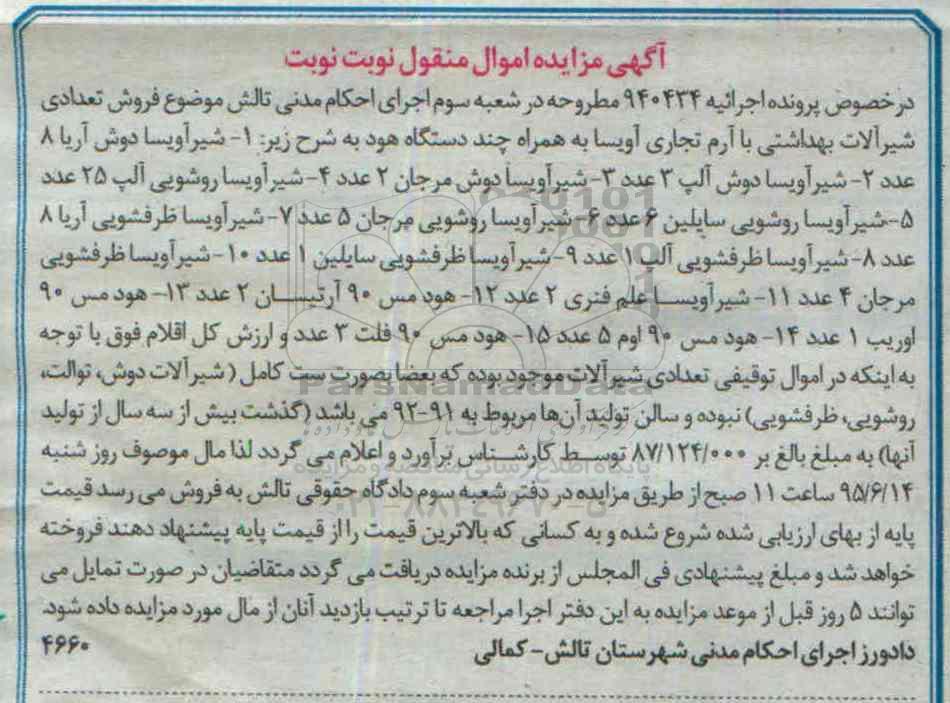 آگهی مزایده اموال منقول نوبت نوبت
در خصوص پرونده اجرائیه ۹۴۰۴۳۴ مطروحه در شعبه سوم اجرای احکام مدنی تالش موضوع فروش تعدادی
شیرآلات بهداشتی با آرم تجاری آویسا به همراه چند دستگاه هود به شرح زیر: ۱- شیرآویسا دوش آریا ۸
عدد ۲- شیرآویسا دوش آلپ ۳ عدد ۳- شیرآویسا دوش مرجان ۲ عدد ۴- شیرآویسا روشویی آلپ ۲۵ عدد
۵- شیرآویسا روشویی ساپلین ۶ عدد ۶- شیرآویسا روشویی مرجان ۵ عدد ۷- شیرآویسا ظرفشویی آریا ۸
عدد ۸- شیرآویسا ظرفشویی آلپ ۱ عدد ۹- شیرآویسا ظرفشویی ساپلین ۱ عدد ۱۰- شیرآویسا ظرفشویی
مرجان ۴ عدد ۱۱- شیرآویسا علم فنری ۲ عدد ۱۲- هود مس ۹۰ آرتیسان ۲ عدد ۱۳- هود مس ۹۰
اوریب ۱ عدد ۱۴- هود مس ۹۰ اوم ۵ عدد ۱۵- هود مس ۹۰ فلت ۳ عدد و ارزش کل اقلام فوق با توجه
به اینکه در اموال توقیفی تعدادی شیرآلات موجود بوده که بعضا بصورت ست کامل (شیرآلات دوش، توالت،
روشویی، ظرفشویی) نبوده و سالن تولید آن‌ها مربوط به ۹۱-۹۲ می باشد (گذشت بیش از سه سال از تولید
آنها) به مبلغ بالغ بر ۸۷/۱۲۴/۰۰۰ توسط کارشناس برآورد و اعلام می گردد لذا مال موصوف روز شنبه
۹۵/۶/۱۴ ساعت ۱۱ صبح از طریق مزایده در دفتر شعبه سوم دادگاه حقوقی تالش به فروش می رسد قیمت
پایه از بهای ارزیابی شده شروع شده و به کسانی که بالاترین قیمت را از قیمت پایه پیشنهاد دهند فروخته
خواهد شد و مبلغ پیشنهادی فی المجلس از برنده مزایده دریافت می گردد متقاضیان در صورت تمایل می
توانند ۵ روز قبل از موعد مزایده به این دفتر اجرا مراجعه تا ترتیب بازدید آنان از مال مورد مزایده داده شود.
دادورز اجرای احکام مدنی شهرستان تالش - کمالی ۴۶۶۰
ParsNamadData
پایگاه اطلاع رسانی مناقصه و مزایده